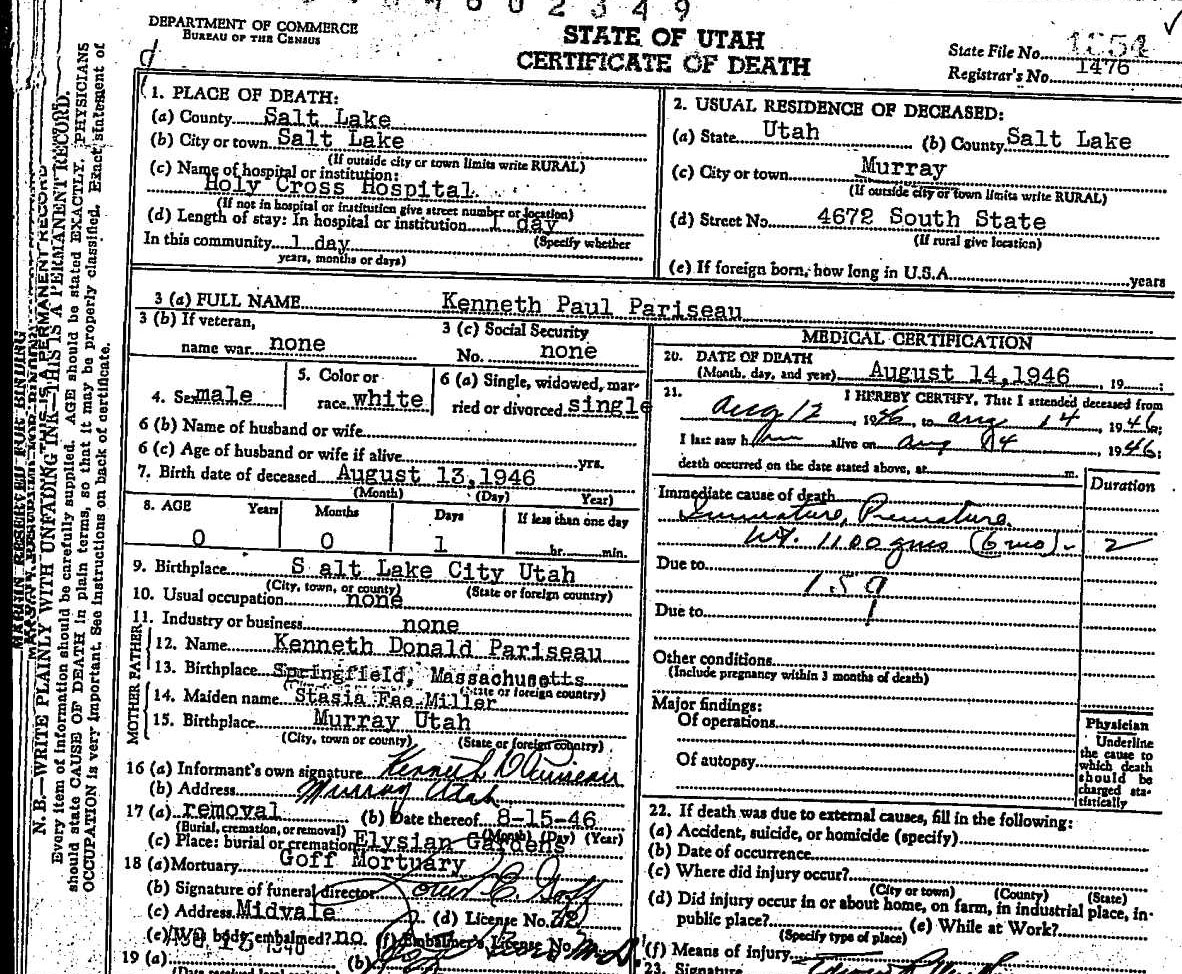 4602349
DEPARTMENT OF COMMERCE
BUREAU OF THE CENSUS
STATE OF UTAH
CERTIFICATE OF DEATH
State File No. 1854
Registrar's No. 1476
N.B.—WRITE PLAINLY WITH UNFADING INK—THIS IS A PERMANENT RECORD.
Every item of information should be carefully supplied. AGE should be stated EXACTLY. PHYSICIANS
should state CAUSE OF DEATH in plain terms, so that it may be properly classified. Exact statement of
OCCUPATION is very important. See instructions on back of certificate.
1. PLACE OF DEATH:
(a) County Salt Lake
(b) City or town Salt Lake
(If outside city or town limits write RURAL)
(c) Name of hospital or institution:
Holy Cross Hospital
(If not in hospital or institution give street number or location)
(d) Length of stay: In hospital or institution 1 day
(Specify whether
In this community 1 day
years, months or days)
2. USUAL RESIDENCE OF DECEASED:
(a) State Utah (b) County Salt Lake
(c) City or town Murray
(If outside city or town limits write RURAL)
(d) Street No. 4672 South State
(If rural give location)
(e) If foreign born, how long in U.S.A. years
3 (a) FULL NAME Kenneth Paul Pariseau
3 (b) If veteran,
name war none
3 (c) Social Security
No. none
4. Sex male
5. Color or
race white
6 (a) Single, widowed, mar-
ried or divorced single
6 (b) Name of husband or wife
6 (c) Age of husband or wife if alive yrs.
7. Birth date of deceased August 13,1946
(Month) (Day) Year)
8. AGE Years Months Days If less than one day
0 0 1 hr. min.
9. Birthplace S alt Lake City Utah
(City, town, or county) (State or foreign country)
10. Usual occupation none
11. Industry or business none
FATHER
12. Name Kenneth Donald Pariseau
13. Birthplace Springfield, Massachusetts
(State or foreign country)
MOTHER
14. Maiden name Stasia Fae Miller
15. Birthplace Murray Utah
(City, town or county) (State or foreign country)
16 (a) Informant's own signature Kenneth D Pariseau
(b) Address Murray Utah
17 (a) removal (b) Date thereof 8-15-46
(Burial, cremation, or removal) (Month) (Day) (Year)
(c) Place: burial or cremation Elysian Gardens
18 (a) Mortuary Goff Mortuary
(b) Signature of funeral director Goff
(c) Address Midvale (d) License No. 32
(e) Was body embalmed? no (f) Embalmer's License No.
19 (a) (b)
MEDICAL CERTIFICATION
20. DATE OF DEATH
(Month, day, and year) August 14,1946, 19
21. I HEREBY CERTIFY, That I attended deceased from
Aug 12, 1946, to Aug 14, 1946;
I last saw him alive on Aug 14 1946;
death occurred on the date stated above, at m.
Duration
Immediate cause of death
Immature, Premature
Wt. 1100 gms (6 mo) - 2
Due to 159
Due to
Other conditions
(Include pregnancy within 3 months of death)
Major findings:
Of operations
Of autopsy
Physician
Underline
the cause to
which death
should be
charged sta-
tistically
22. If death was due to external causes, fill in the following:
(a) Accident, suicide, or homicide (specify)
(b) Date of occurrence
(c) Where did injury occur?
(City or town) (County) (State)
(d) Did injury occur in or about home, on farm, in industrial place, in
public place? (e) While at Work?
(Specify type of place)
(f) Means of injury
23. Signature